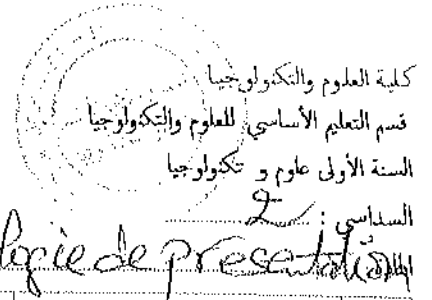 كلية العلوم والتكنولوجيا
قسم التعليم الأساسي للعلوم والتكنولوجيا
السنة الأولى علوم و تكنولوجيا
السداسي : 2
logie de presentation